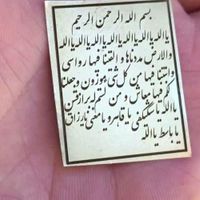 بسم الله الرحمن الرحيم
يا الله يا الله يا الله يا الله يا الله يا الله
والارض مددناها والقينا فيها رواسي
وانبتنا فيها من كل شئ موزون وجعلنا
لكم فيها معايش ومن لستم له برازقين
يا الله يا
يا باسط يا الله